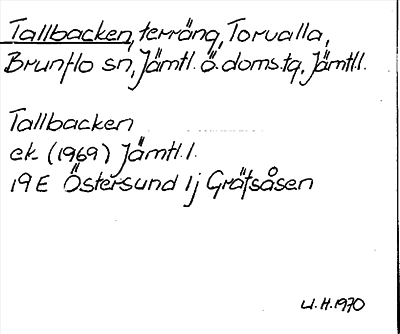 Tallbacken, terräng, Torvalla,
Brunflo sn, Jämtl. ö. doms.tg, Jämtl.l.
Tallbacken
ek (1969) Jämtl.l.
19E Östersund 1j Gräfsåsen
U.H. 1970